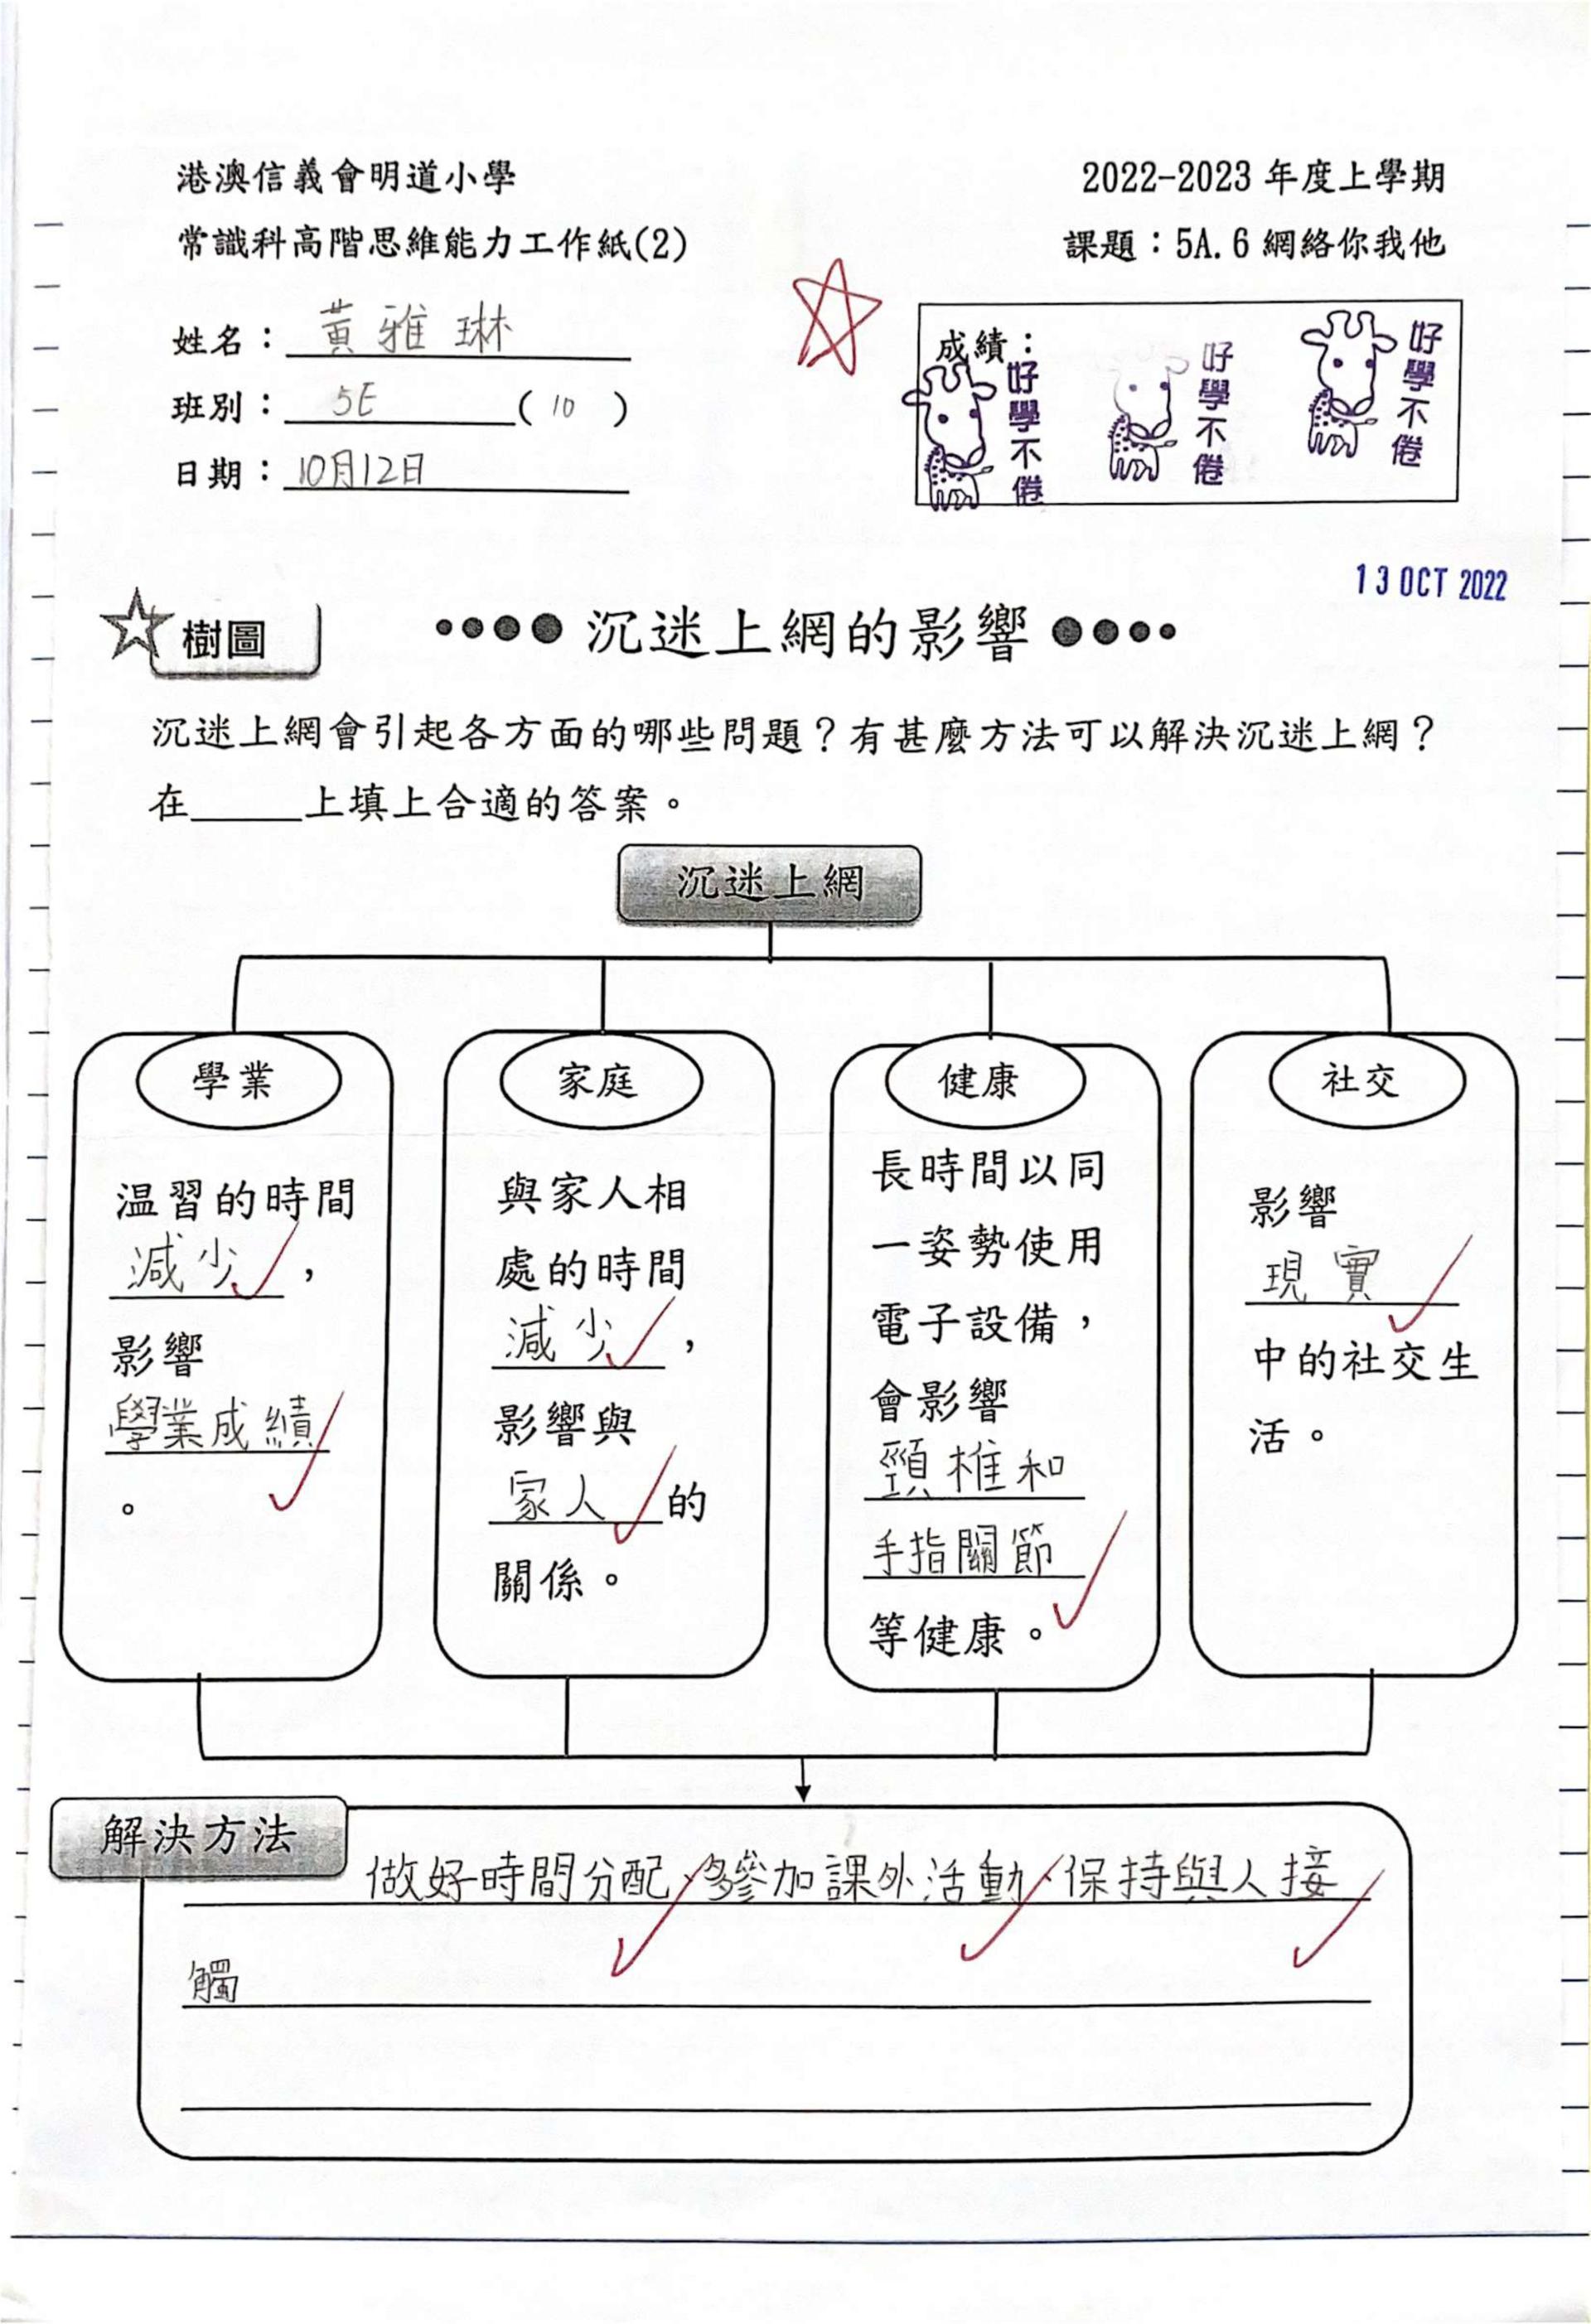 港澳信義會明道小學
2022-2023 年度上學期
常識科高階思維能力工作紙(2)
課題：5A.6 網絡你我他
姓名：黃雅琳
班別：5E(10)
日期：10月12日
成績：
好學不倦
好學不倦
好學不倦
13 OCT 2022
樹圖
沉迷上網的影響
沉迷上網會引起各方面的哪些問題？有甚麼方法可以解決沉迷上網？
在_____上填上合適的答案。
沉迷上網
學業
温習的時間
減少，
影響
學業成績
。
家庭
與家人相
處的時間
減少，
影響與
家人的
關係。
健康
長時間以同
一姿勢使用
電子設備，
會影響
頸椎和
手指關節
等健康。
社交
影響
現實
中的社交生
活。
解決方法
做好時間分配、多參加課外活動、保持與人接
觸